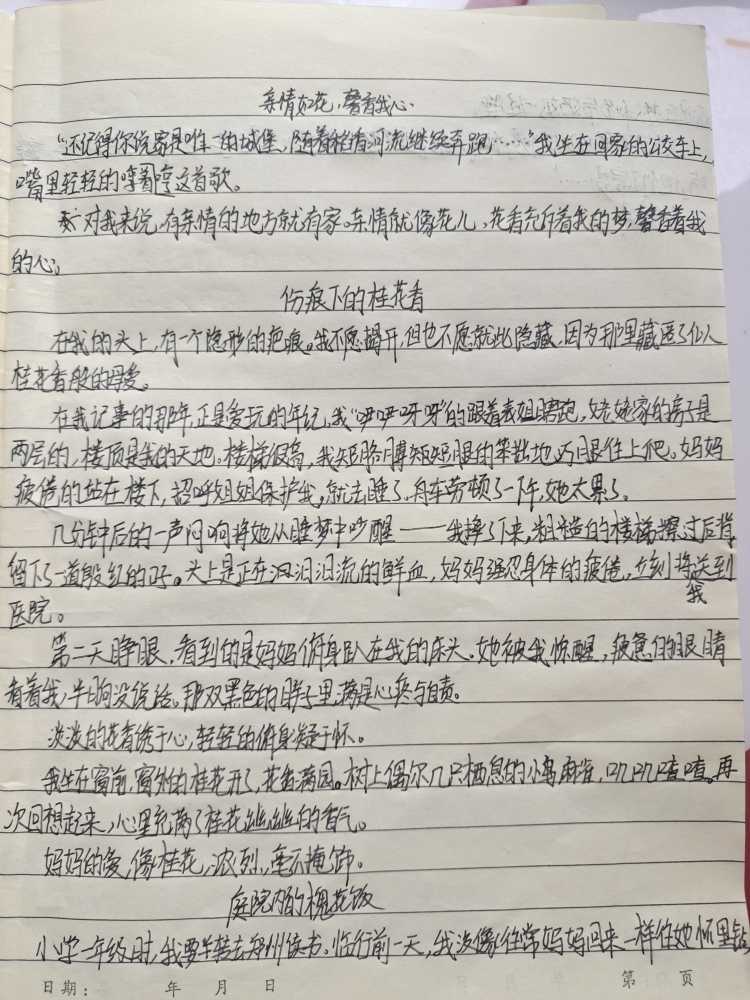 亲情如花,馨香我心
"还记得你说家是唯一的城堡,随着稻香河流继续奔跑……"我坐在回家的公交车上,
嘴里轻轻的哼着这首歌。
对我来说,有亲情的地方就有家。亲情就像花儿,花香充斥着我的梦,馨香着我
的心。
伤痕下的桂花香
在我的头上,有一个隐形的疤痕。我不愿揭开,但也不愿就此隐藏,因为那里藏匿了似人
桂花香般的母爱。
在我记事的那年,正是爱玩的年纪,我"咿咿呀呀"的跟着表姐瞎跑,姥姥家的房子是
两层的,楼顶是我的天地。楼梯很高,我短胳膊短腿的笨拙地 腿往上爬。妈妈
疲倦的站在楼下,招呼姐姐保护我,就去睡了。舟车劳顿了一下午,她太累了。
几分钟后的一声闷响将她从睡梦中吵醒——我摔了下来,粗糙的楼梯擦过后背,
留下了一道殷红的 。头上是正在汩汩流的鲜血,妈妈强忍身体的疲倦,立刻将送到
我
医院。
第二天睁眼,看到的是妈妈俯身趴在我的床头。她被我惊醒,疲惫的眼睛
看着我,半晌没说话。那双黑色的眸子里满是心疼与自责。
淡淡的花香绣于心,轻轻的俯身凝于怀。
我坐在窗前,窗外的桂花开了,花香满园。树上偶尔几只栖息的小鸟麻雀,叽叽喳喳。再
次回想起来,心里充满了桂花幽幽的香气。
妈妈的爱,像桂花,浓烈,毫不掩饰。
庭院内的槐花饭
小学一年级时,我要转去郑州读书。临行前一天,我没像往常妈妈回来一样往她怀里钻,
日期: 年 月 日 第 页